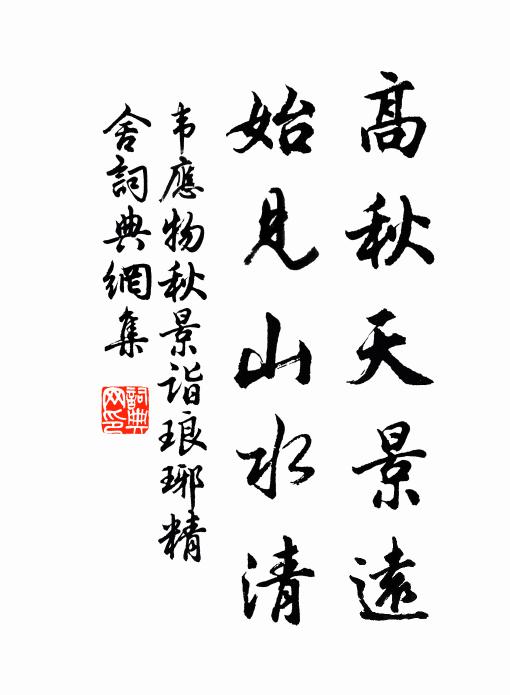 高秋天景遠
始見山水清
韦應物秋景诣琅琊精
舍詞典網集
詞典
网印